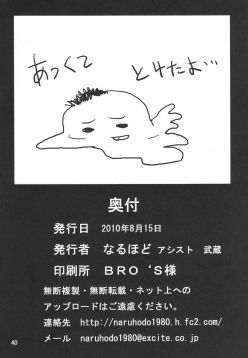 あつくて
とけたよ…
奥付
発行日 2010年8月15日
発行者 なるほど アシスト 武蔵
印刷所 BRO'S様
無断複製・無断転載・ネット上への
アップロードはご遠慮ください。
連絡先 http://naruhodo1980.h.fc2.com/
メール naruhodo1980@excite.co.jp
40